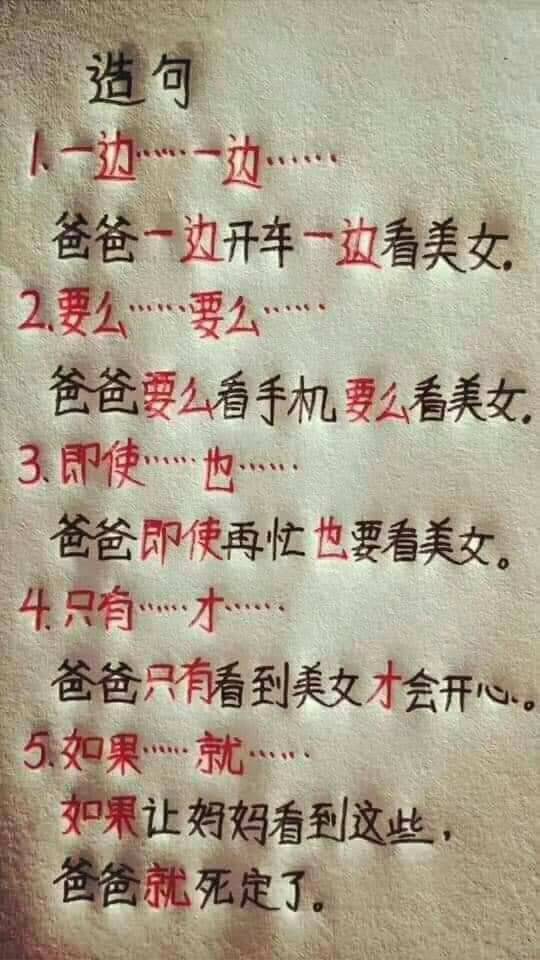 造句
1.一边……一边……
爸爸一边开车一边看美女.
2.要么……要么……
爸爸要么看手机要么看美女.
3.即使……也……
爸爸即使再忙也要看美女。
4.只有……才……
爸爸只有看到美女才会开心.。
5.如果……就……
如果让妈妈看到这些,
爸爸就死定了。